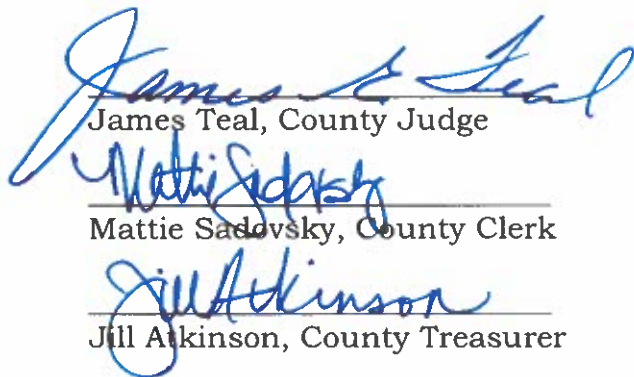 James E Teal
James Teal, County Judge
Mattie Sadovsky
Mattie Sadovsky, County Clerk
Jill Atkinson
Jill Atkinson, County Treasurer